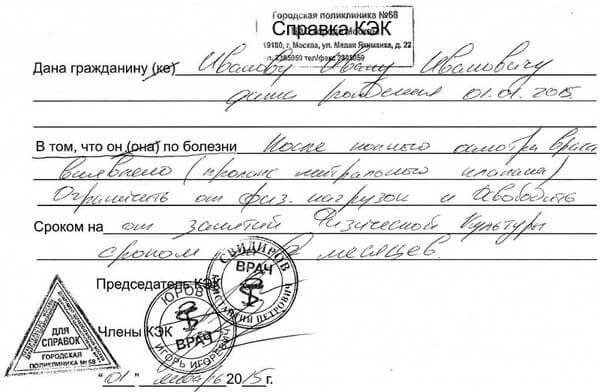 Городская поликлиника №68
Справка КЭК
19180, г. Москва, ул. Малая Якиманка, д. 22
2385059 тел/факс 2385059
Дана гражданину (ке) Иванову Ивану Ивановичу
дата рождения 01.01.2015.
В том, что он (она) по болезни После полного осмотра врача
выявлено (пролапс митрального клапана)
Ограничить от физ. нагрузок и Освободить
Сроком на от занятий Физической Культуры
сроком месяцев.
Председатель КЭК
СВИДИРОВ
ВРАЧ
ПЕТРОВИЧ
Члены КЭК
ЮРОВ
ВРАЧ
ИГОРЬ ИГОРЕВИЧ
ДЛЯ
СПРАВОК
ГОРОДСКАЯ
ПОЛИКЛИНИКА №68
"01" январь 2015 г.